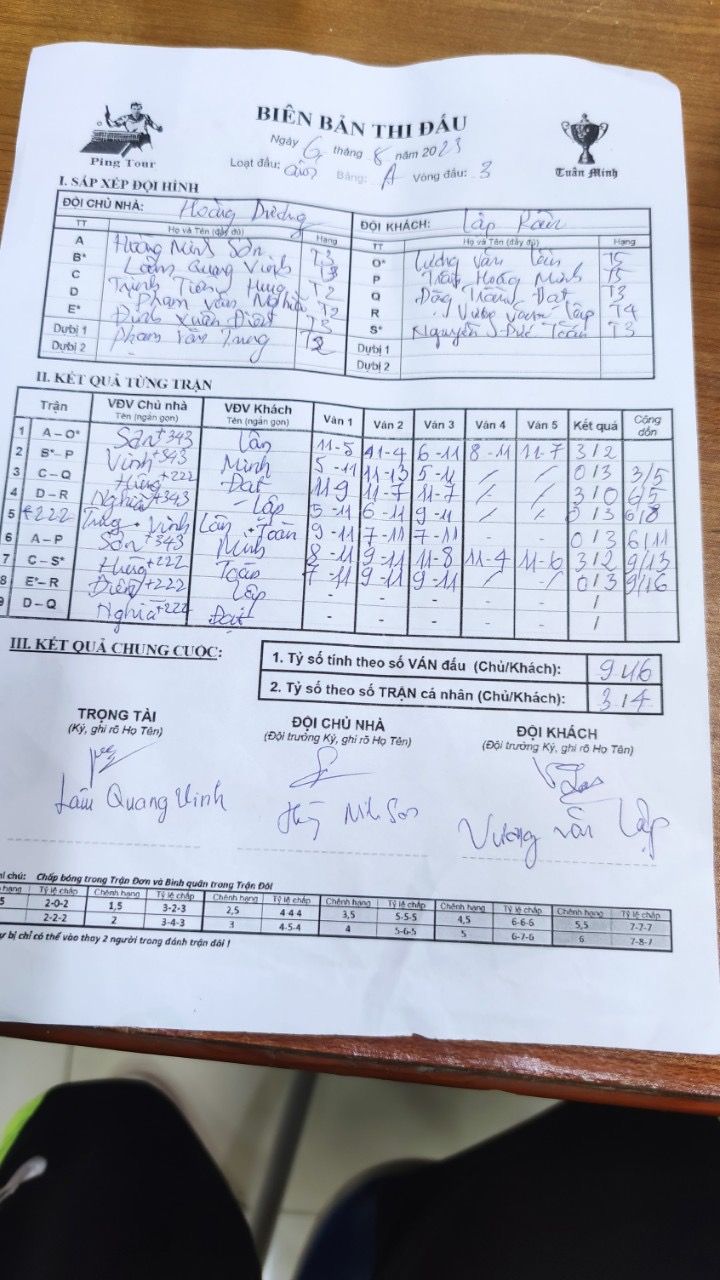 BIÊN BẢN THI ĐẤU
Ping Tour
Ngày 6 tháng 8 năm 2023
Loạt đấu: Bảng: A Vòng đấu: 3
Tuấn Minh
I. SẮP XẾP ĐỘI HÌNH
ĐỘI CHỦ NHÀ: Hoàng Dương ĐỘI KHÁCH: Lập
TT Họ và Tên (đầy đủ) Hạng TT Họ và Tên (đầy đủ) Hạng
A Hoàng Minh Sơn T3 O* Lương Văn Lân T5
B* Lâm Quang Vinh T3 P Trần Hoàng Minh T5
C Trịnh Tiến Hưng T2 Q Đặng Trần Đạt T3
D Phạm Văn Nghĩa T2 R Vương Văn Lập T4
E* Đinh Xuân T3 S* Nguyễn Đức Toàn T3
Dự bị 1 Phạm Văn Trung T2 Dự bị 1
Dự bị 2 Dự bị 2
II. KẾT QUẢ TỪNG TRẬN
Trận VĐV Chủ nhà Tên (ngắn gọn) VĐV Khách Tên (ngắn gọn) Ván 1 Ván 2 Ván 3 Ván 4 Ván 5 Kết quả Cộng dồn
1 A – O* Sơn +343 Lân 11-5 11-4 6-11 8-11 11-7 3/2
2 B* – P Vinh +343 Minh 5-11 11-13 5-11 / / 0/3 3/5
3 C – Q Hưng +222 Đạt 11-9 11-7 11-7 / / 3/0 6/5
4 D – R Nghĩa +343 Lập 5-11 6-11 9-11 / / 0/3 6/8
5 +222 Trung + Vinh Lân + Toàn 9-11 7-11 7-11 0/3 6/11
6 A – P Sơn +343 Minh 8-11 9-11 11-8 11-4 11-6 3/2 9/13
7 C – S* Hưng +222 Toàn 7-11 9-11 9-11 / / 0/3 9/16
8 E* – R +222 Lập - - - - - /
9 D – Q Nghĩa +222 Đạt - - - - - /
III. KẾT QUẢ CHUNG CUỘC:
1. Tỷ số tính theo số VÁN đấu (Chủ/Khách): 9/16
2. Tỷ số theo số TRẬN cá nhân (Chủ/Khách): 3/4
TRỌNG TÀI
(Ký, ghi rõ Họ Tên)
ĐỘI CHỦ NHÀ
(Đội trưởng Ký, ghi rõ Họ Tên)
ĐỘI KHÁCH
(Đội trưởng Ký, ghi rõ Họ Tên)
Lâm Quang Vinh
Vương Văn Lập
hi chú: Chấp bóng trong Trận Đơn và Bình quân trong Trận Đôi
hạng Tỷ lệ chấp Chênh hạng Tỷ lệ chấp Chênh hạng Tỷ lệ chấp Chênh hạng Tỷ lệ chấp Chênh hạng Tỷ lệ chấp Chênh hạng Tỷ lệ chấp
5 2-0-2 1,5 3-2-3 2,5 4-4-4 3,5 5-5-5 4,5 6-6-6 5,5 7-7-7
2-2-2 2 3-4-3 3 4-5-4 4 5-6-5 5 6-7-6 6 7-8-7
ự bị chỉ có thể vào thay 2 người trong đánh trận đôi !